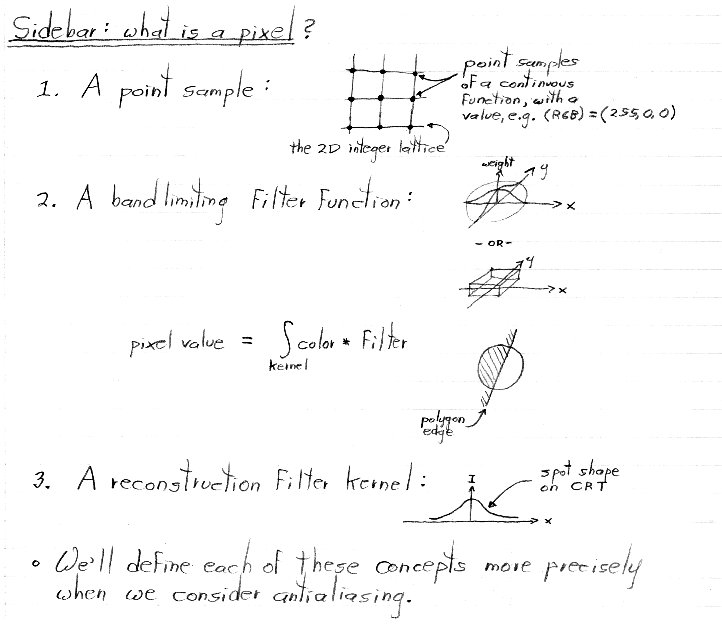 Sidebar: what is a pixel?
1. A point sample:
point samples
of a continuous
function, with a
value, e.g. (RGB) = (255,0,0)
the 2D integer lattice
2. A bandlimiting Filter Function:
weight
y
x
- OR -
y
x
pixel value = ∫ color * Filter
kernel
polygon
edge
3. A reconstruction Filter kernel:
I
x
spot shape
on CRT
• We'll define each of these concepts more precisely
when we consider antialiasing.